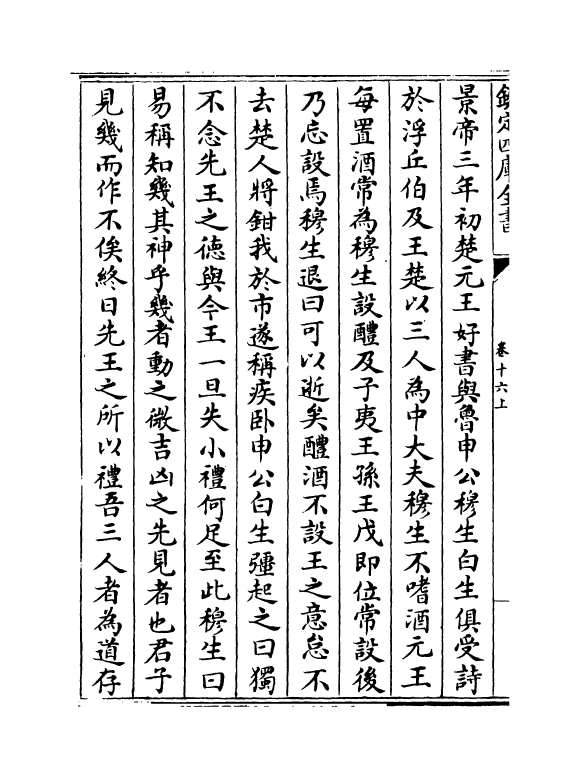 欽定四庫全書
卷十六上
景帝三年初楚元王好書與魯申公穆生白生俱受詩
於浮丘伯及王楚以三人為中大夫穆生不嗜酒元王
每置酒常為穆生設醴及子夷王孫王戊即位常設後
乃忘設焉穆生退曰可以逝矣醴酒不設王之意怠不
去楚人將鉗我於市遂稱疾卧申公白生彊起之曰獨
不念先王之徳與今王一旦失小禮何足至此穆生曰
易稱知幾其神乎幾者動之微吉凶之先見者也君子
見幾而作不俟終日先王之所以禮吾三人者為道存